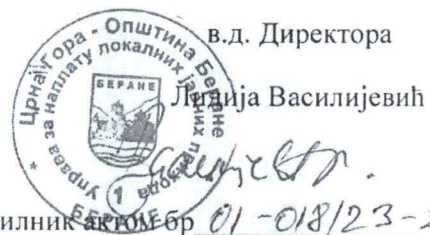 в.д. Директора
Лидија Василијевић
Црна Гора - Општина Беране
Управа за наплату локалних јавних прихода
БЕРАНЕ
1
БЕРАНЕ
илник актом бр 01-018/23-